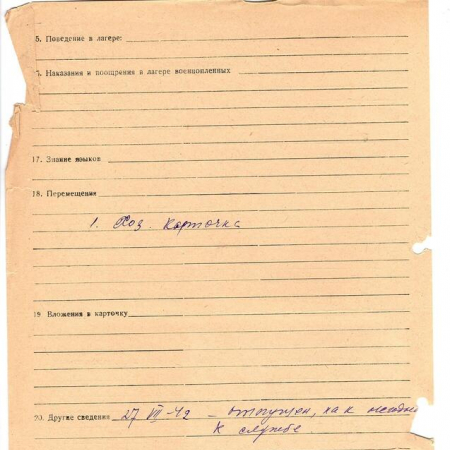 5. Поведение в лагере:
6. Наказания и поощрения в лагере военнопленных
17. Знание языков
18. Перемещения
1. Хоз. карточка
19 Вложения в карточку
20. Другие сведения 27 VII-42 – отпущен, как негодный
к службе.